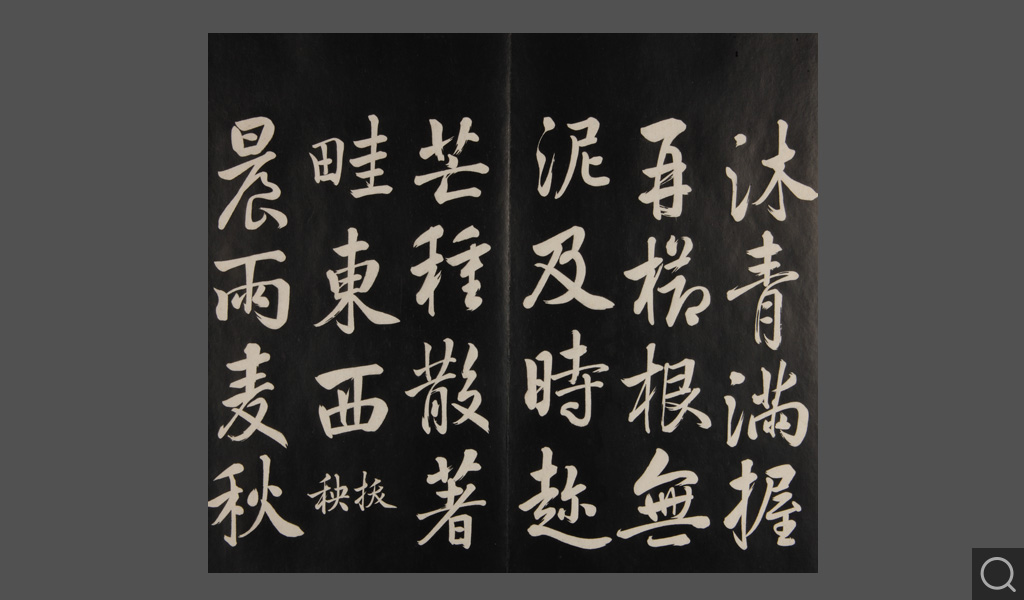 沐青滿握
再櫛根無
泥及時趂
芒種散著
畦東西 拔秧
晨雨麦秋